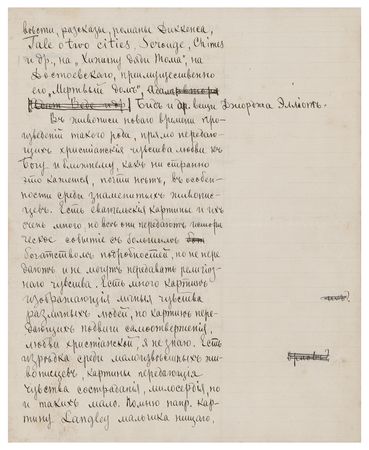 вѣсти, разсказы, романы Диккенса,
Tale of two cities, Scrooge, Chimes
и др., на „Хижину дяди Тома", на
Достоевскаго, преимущественно
его „Мертвый Домъ",
Бидъ и др. вещи Джорджа Элліотъ.
Въ живописи новаго времени про-
изведеній такого рода, прямо передаю-
щихъ христіанскія чувства любви къ
Богу и ближнему, какъ ни странно
это кажется, почти нѣтъ, въ особен-
ности среди знаменитыхъ живопис-
цевъ. Есть евангельскія картины и ихъ
очень много, но всѣ они передаютъ истори-
ческое событіе съ большимъ
богатствомъ подробностей, но не пере-
даютъ и не могутъ передавать религіоз-
наго чувства. Есть много картинъ
изображающія личныя чувства
различныхъ людей, но картинъ пере-
дающихъ подвиги самоотверженія,
любви христіанской, я не знаю. Есть
изрѣдка среди малоизвѣстныхъ жи-
вописцевъ, картины передающія
чувства состраданія, милосердія, но
и такихъ мало. Помню напр. кар-
тину Langley мальчика нищаго,